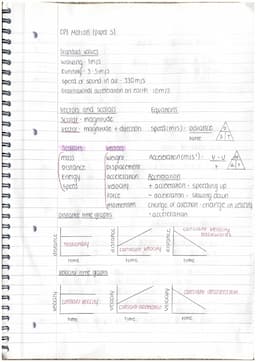 CP1 Motion (paper 5)
Standard values
walking - 1m/s
running - 3.5m/s
speed of sound in air - 330m/s
Gravitational acceleration on earth - 10m/s
Vectors and scalars Equations
Scalar - magnitude
Vector - magnitude + direction speed(m/s): Distance
time
Scalars: Vectors:
mass weight Acceleration(m/s²): V - U
Distance Displacement t
Energy acceleration Acceleration
Speed velocity + acceleration - speeding up
Force - acceleration - slowing down
momentum change of direction - change in velocity
Distance time graphs - acceleration
distance distance distance
stationary constant velocity
time time time
Velocity time graphs
velocity velocity velocity
constant velocity constant acceleration constant deceleration
time time time